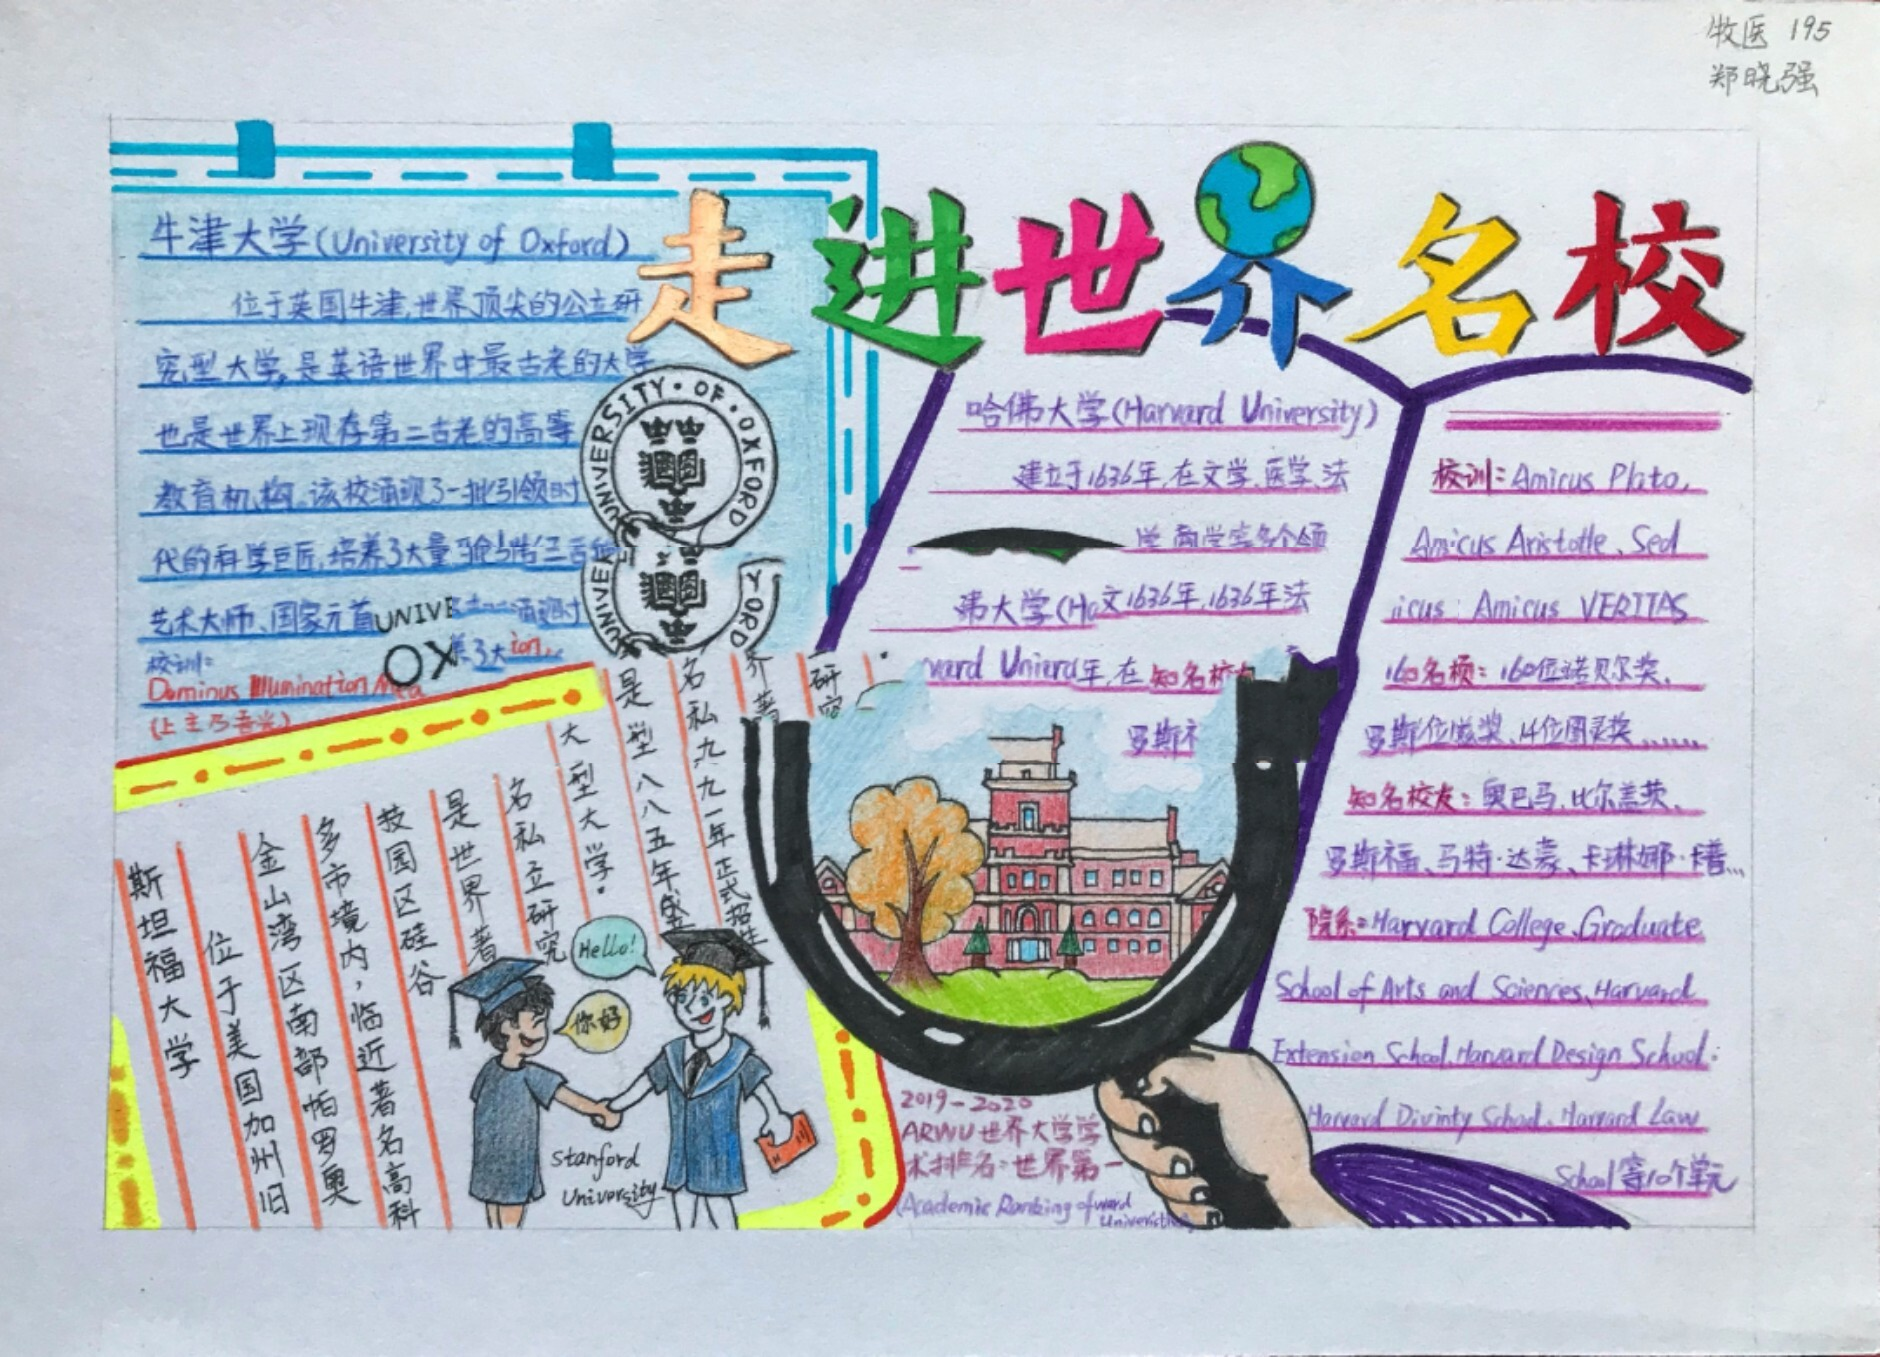 牧医 195
郑晓强
走进世界名校
牛津大学(University of Oxford)
位于英国牛津,世界顶尖的公立研
究型大学,是英语世界中最古老的大学
也是世界上现存第二古老的高等
教育机构。该校涌现了一批引领时
代的科学巨匠,培养了大量
艺术大师、国家元首UNIVE
校训:
OX
Dominus Illumination Mea
UNIVERSITY·OF·OXFORD
斯坦福大学
位于美国加州旧
金山湾区南部帕罗奥
多市境内,临近著名高科
技园区硅谷
是世界著
名私立研究
大型大学.
是型八八五年
名私九九一年正式招生
界著
研究
Hello!
你好
Stanford
University
哈佛大学(Harvard University)
建立于1636年,在文学,医学,法
大学(Ha文1636年,1636年法
年,在知名校
罗斯
2019-2020
ARWU世界大学学
术排名:世界第一
(Academic Ranking of
校训:Amicus Plato,
Amicus Aristotle、Sed
icus: Amicus VERITAS
160名顿:160位诺贝尔奖、
罗斯位滋奖、14位图灵奖......
知名校友:奥巴马,比尔盖茨、
罗斯福、马特·达蒙、卡琳娜·卡普...
院系:Harvard College、Graduate
School of Arts and Sciences、Harvard
Extension School,Harvard Design School.
Harvard Divinty School、Harvard Law
School等10个单元